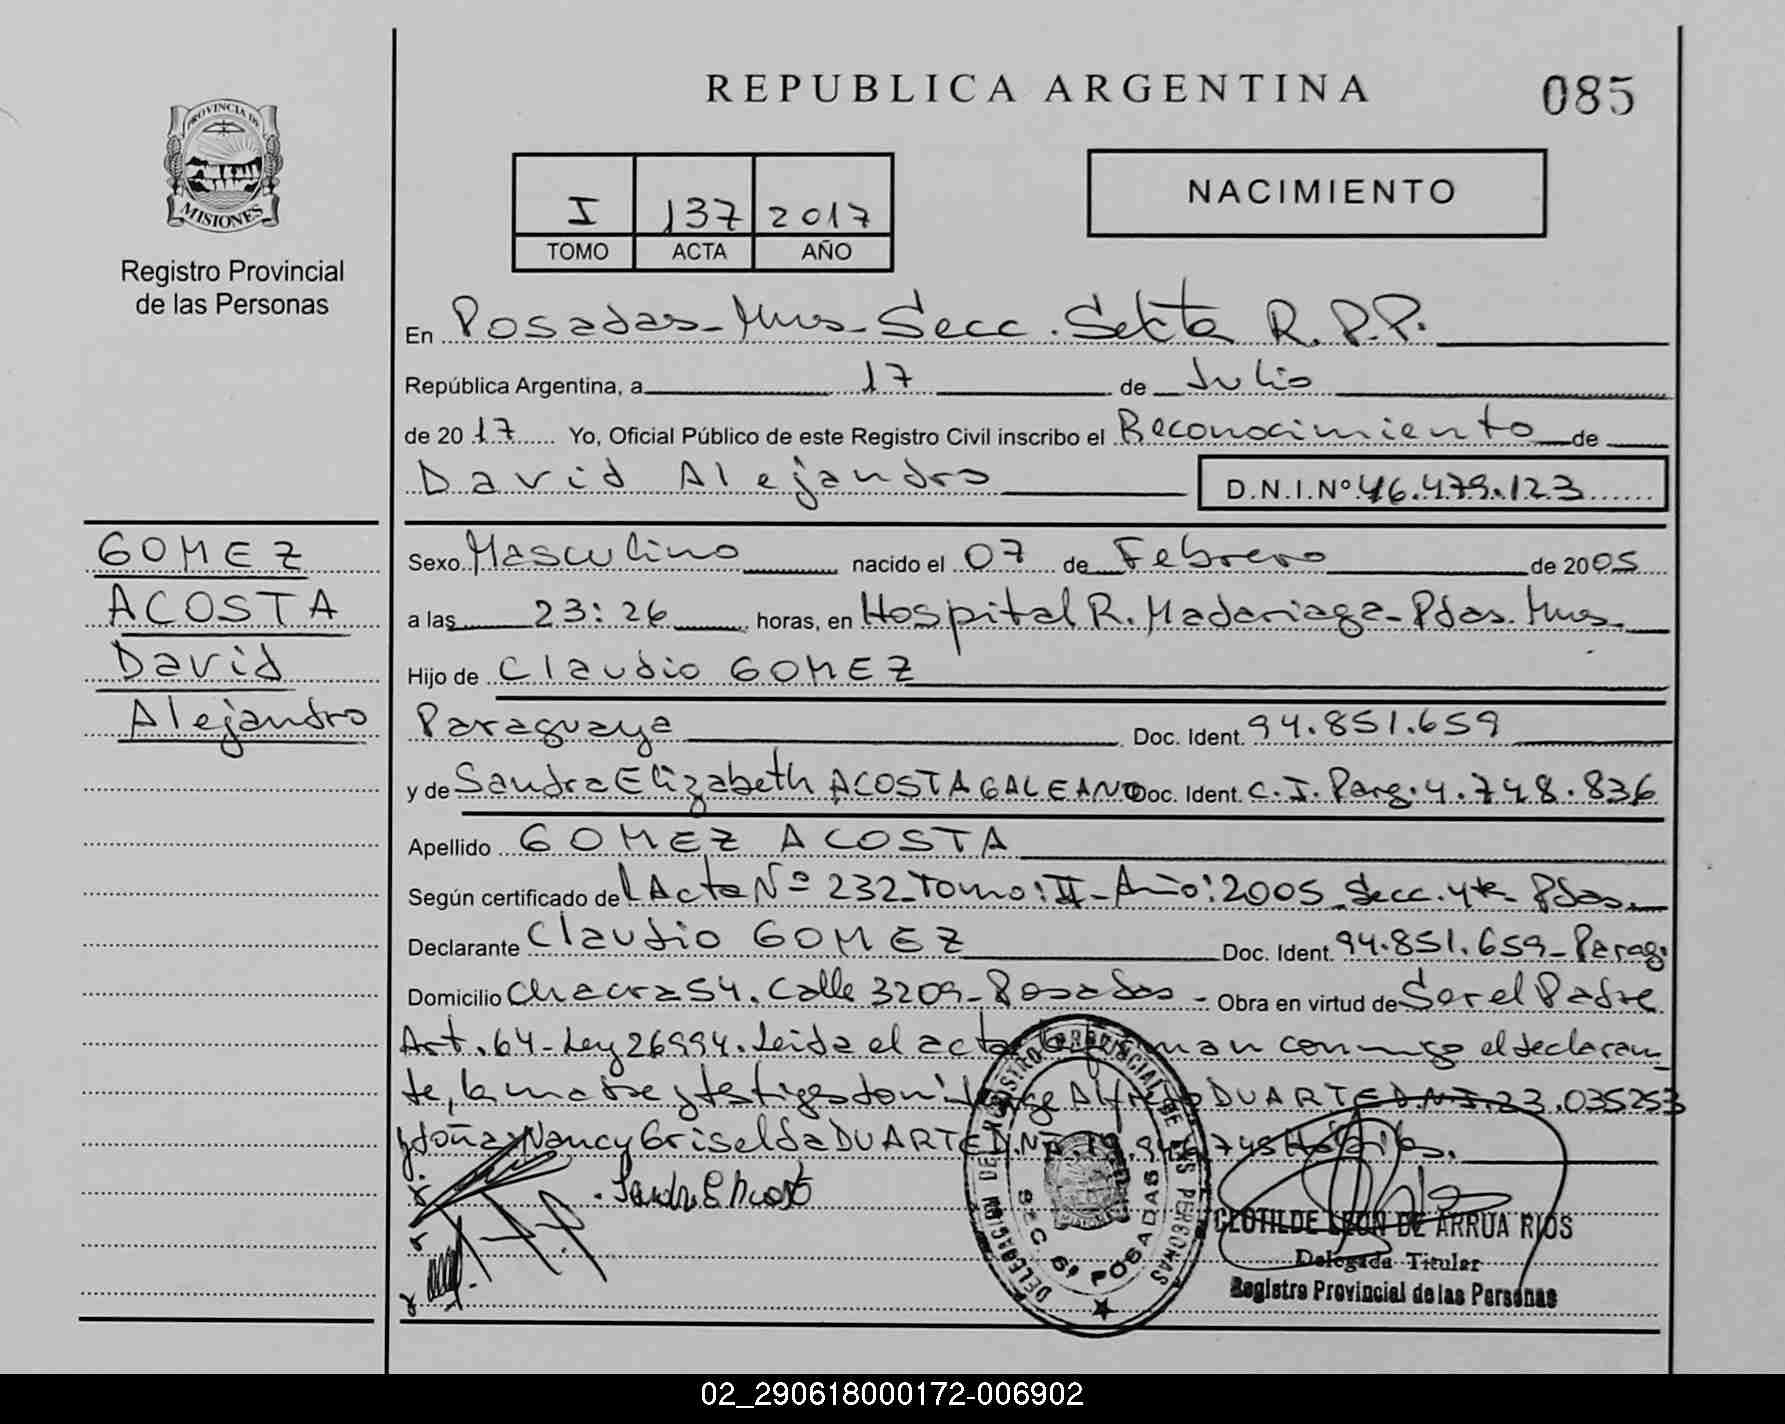 REPUBLICA ARGENTINA
085
PROVINCIA DE
MISIONES
Registro Provincial
de las Personas
I 137 2017
TOMO ACTA AÑO
NACIMIENTO
En Posadas - Mnes - Secc. Sexta R.P.P.
República Argentina, a 17 de Julio
de 2017 Yo, Oficial Público de este Registro Civil inscribo el Reconocimiento de
David Alejandro D.N.I.Nº 46.479.123
GOMEZ
ACOSTA
David
Alejandro
Sexo Masculino nacido el 07 de Febrero de 2005
a las 23:26 horas, en Hospital R. Madariaga - Pdas. Mnes.
Hijo de Claudio GOMEZ
Paraguaya Doc. Ident. 94.851.659
y de Sandra Elizabeth ACOSTA GALEANO Doc. Ident. C.I. Parg. 4.748.836
Apellido GOMEZ ACOSTA
Según certificado del Acta Nº 232 - Tomo: II - Año: 2005 Secc. 4ta - Pdas.
Declarante Claudio GOMEZ Doc. Ident. 94.851.659 - Parag.
Domicilio Chacra 54. Calle 3209 - Posadas - Obra en virtud de Ser el Padre
Art. 64 - Ley 26994. Leida el acta la firman conmigo el declaran
te, la madre y testigos don: Jorge Alfredo DUARTE D.N.I. 23.035253
y doña: Nancy Griselda DUARTE D.N.I. Hábiles.
Sandra E Acosta
DELEGACION DEL REGISTRO PROVINCIAL DE LAS PERSONAS
SEC. 6ª POSADAS
CLOTILDE LEON DE ARRUA RIOS
Delegada Titular
Registro Provincial de las Personas
02_290618000172-006902